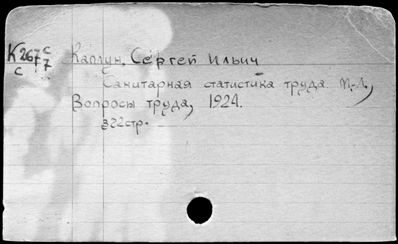 К267с Каплун, Сергей Ильич
с 7
Санитарная статистика труда. М.-Л.,
Вопросы труда, 1924.
322стр.